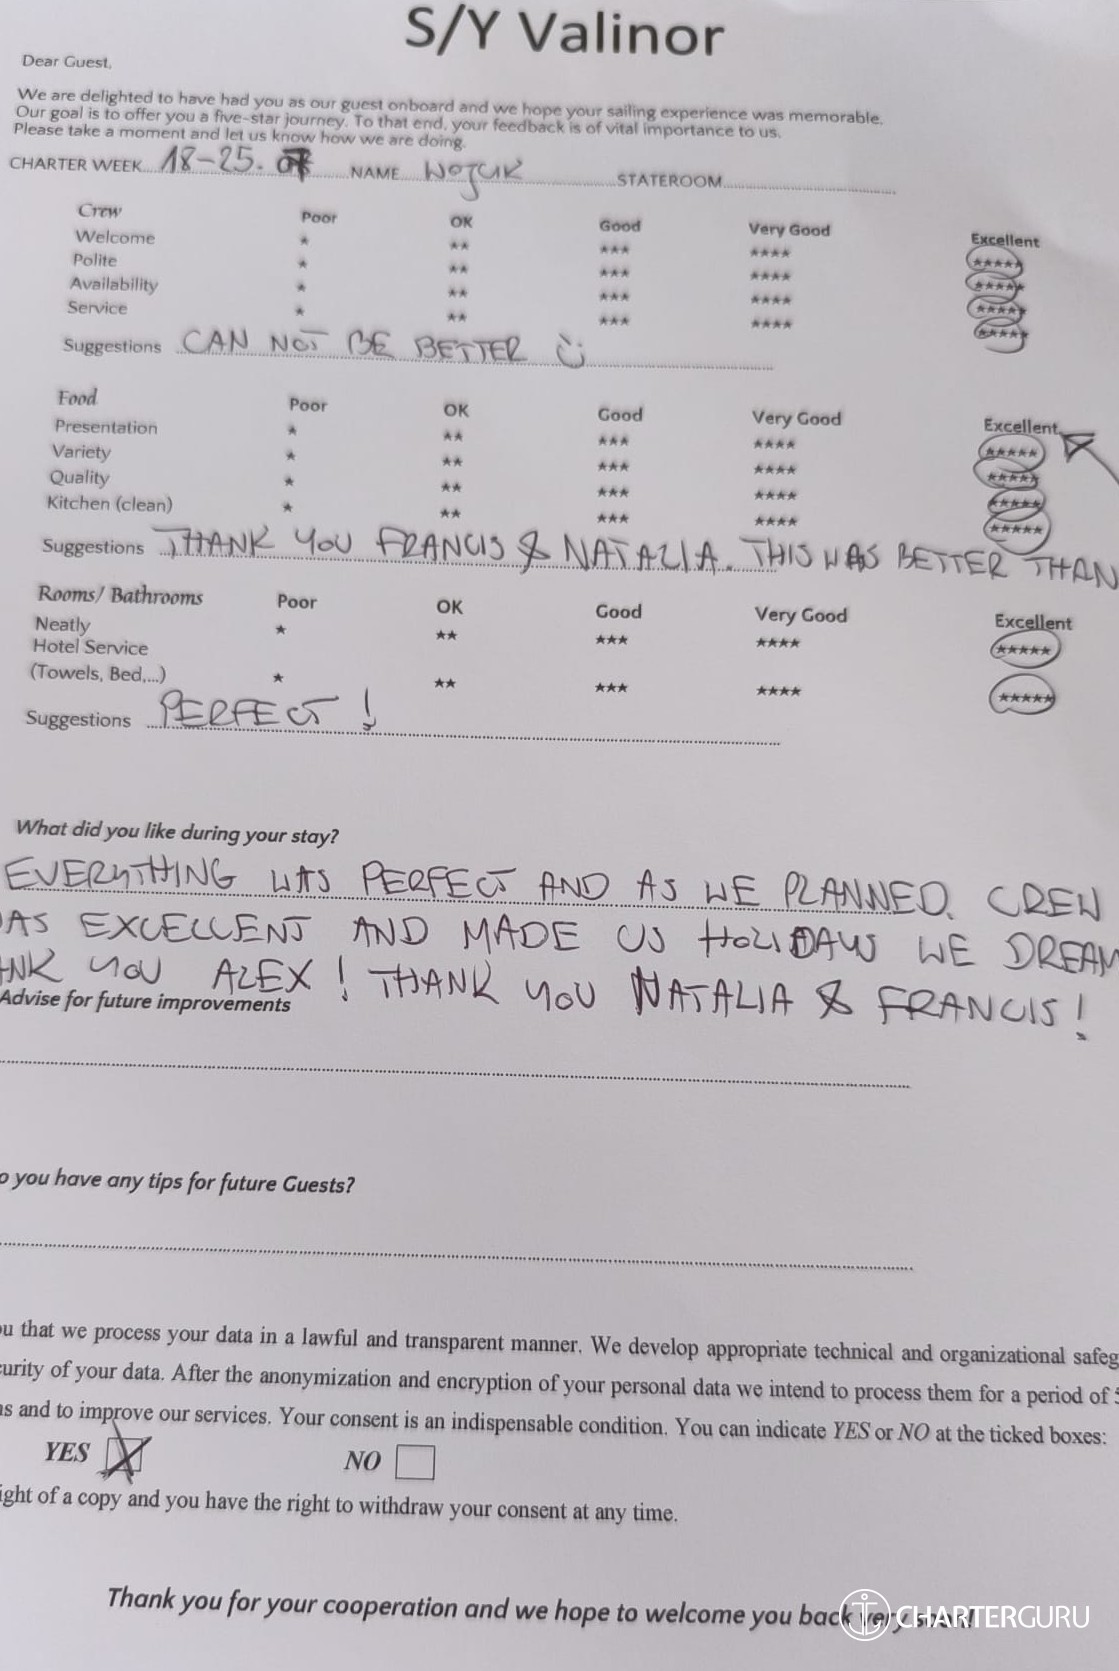 S/Y Valinor
Dear Guest,
We are delighted to have had you as our guest onboard and we hope your sailing experience was memorable.
Our goal is to offer you a five-star journey. To that end, your feedback is of vital importance to us.
Please take a moment and let us know how we are doing.
CHARTER WEEK 18-25. 07 NAME WOJCIK STATEROOM
Crew Poor OK Good Very Good Excellent
Welcome * ** *** **** *****
Polite * ** *** **** *****
Availability * ** *** **** *****
Service * ** *** **** *****
Suggestions CAN NOT BE BETTER
Food Poor OK Good Very Good Excellent
Presentation * ** *** **** *****
Variety * ** *** **** *****
Quality * ** *** **** *****
Kitchen (clean) * ** *** **** *****
Suggestions THANK YOU FRANCIS & NATALIA. THIS WAS BETTER THAN
Rooms/ Bathrooms Poor OK Good Very Good Excellent
Neatly * ** *** **** *****
Hotel Service
(Towels, Bed,...) * ** *** **** *****
Suggestions PERFECT !
What did you like during your stay?
EVERYTHING WAS PERFECT AND AS WE PLANNED. CREW
AS EXCELLENT AND MADE US HOLIDAYS WE DREAM
ANK YOU ALEX! THANK YOU NATALIA & FRANCIS!
Advise for future improvements
o you have any tips for future Guests?
ou that we process your data in a lawful and transparent manner. We develop appropriate technical and organizational safeg
curity of your data. After the anonymization and encryption of your personal data we intend to process them for a period of 5
ns and to improve our services. Your consent is an indispensable condition. You can indicate YES or NO at the ticked boxes:
YES NO
ight of a copy and you have the right to withdraw your consent at any time.
Thank you for your cooperation and we hope to welcome you back very soon!
CHARTERGURU